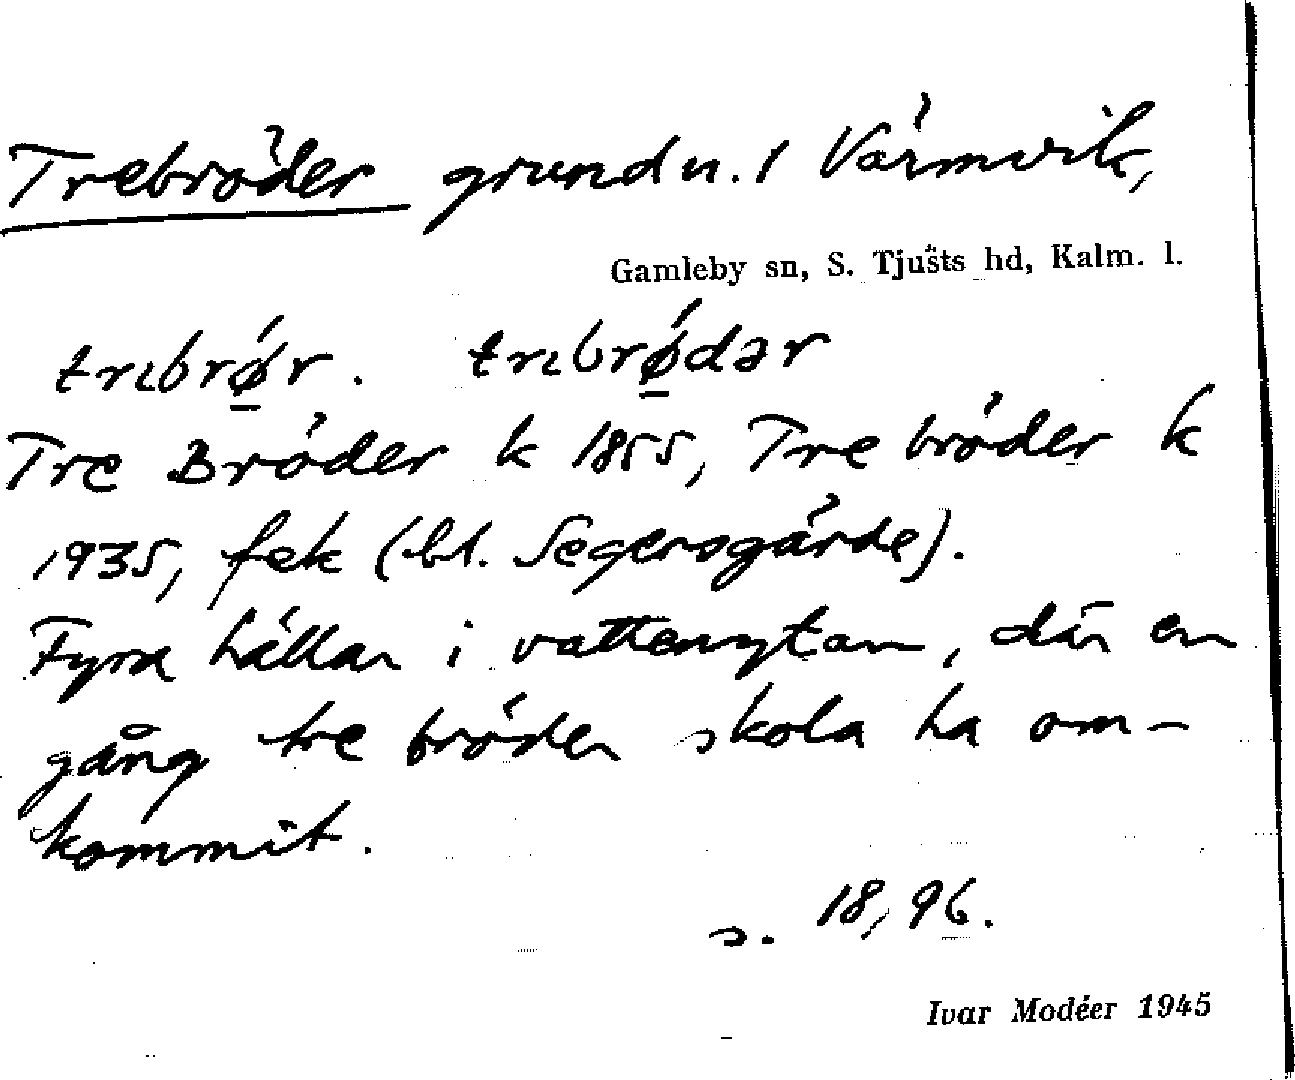 Trebröder grund n. i Värmvik,
Gamleby sn, S. Tjusts hd, Kalm. l.
trıbrǿr. trıbrǿdər
Tre Bröder k 1855, Tre bröder k
1935, fek (bl. Segersgärde).
Fyra hällar i vattenytan, där en
gång tre bröder skola ha om-
kommit.
s. 18, 96.
Ivar Modéer 1945